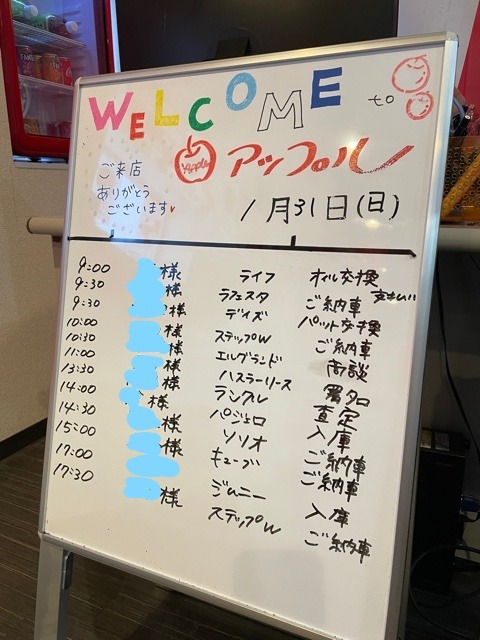 WELCOME to
Apple
アップル
ご来店
ありがとう
ございます♥
1月31日(日)
9:00 様 ライフ オイル交換
9:30 様 ラフェスタ ご納車 支払い
9:30 様 デイズ パット交換
10:00 様 ステップW ご納車
10:30 様 エルグランド 商談
11:00 様 ハスラーリース 署名
13:30 様 ラングル 査定
14:00 様 パジェロ 入庫
14:30 様 ソリオ ご納車
15:00 様 キューブ ご納車
17:00 ジムニー 入庫
17:30 様 ステップW ご納車